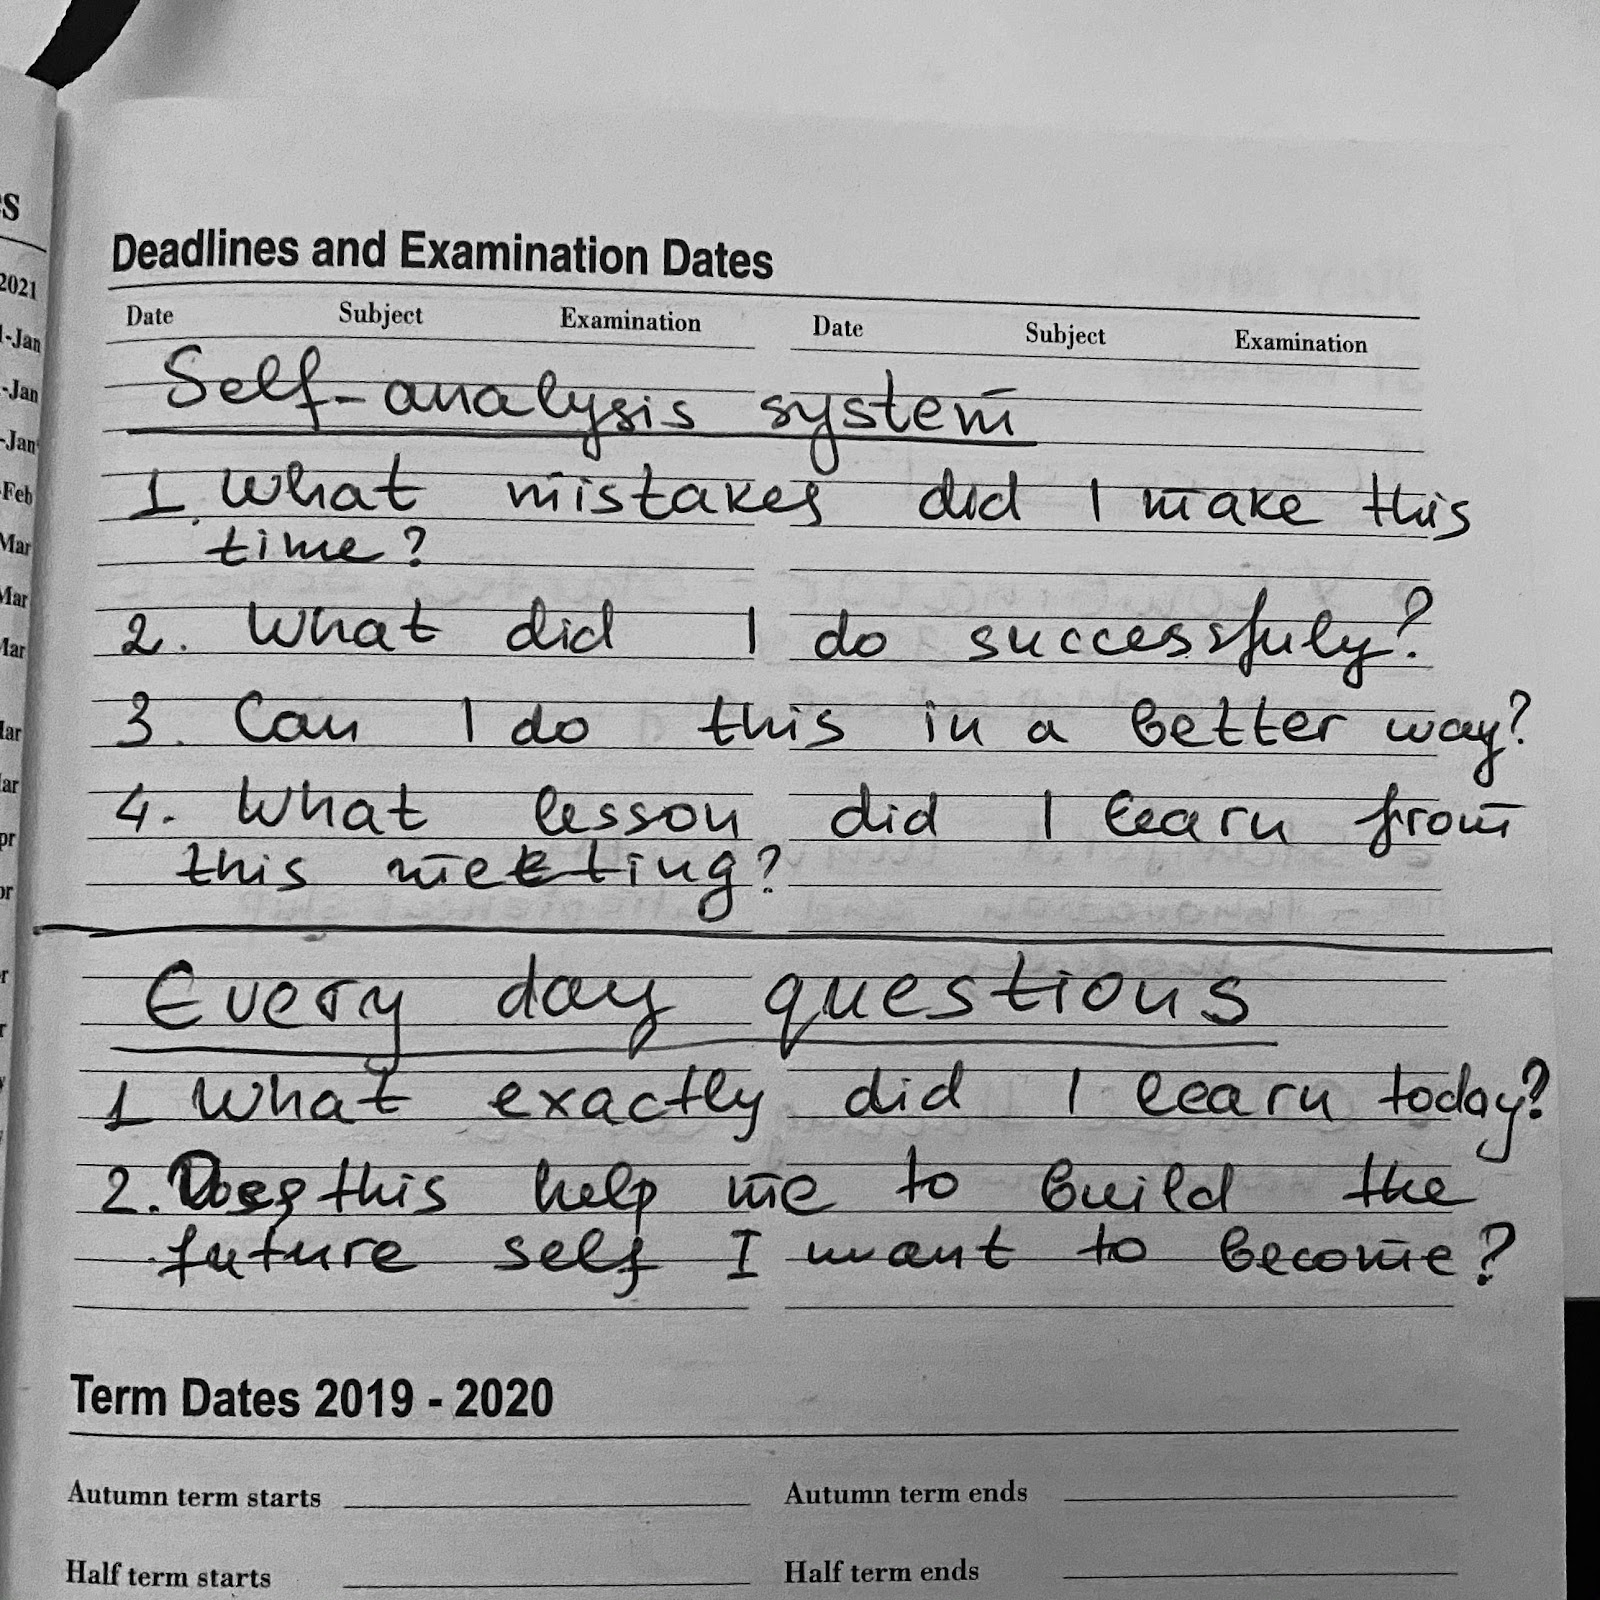 s
2021
-Jan
-Jan
-Jan
-Feb
Mar
Mar
Mar
Deadlines and Examination Dates
Date Subject Examination Date Subject Examination
Self-analysis system
1. What mistakes did I make this
time?
2. What did I do successfuly?
3. Can I do this in a better way?
4. What lesson did I learn from
this meeting?
Every day questions
1 What exactly did I learn today?
2. Does this help me to build the
future self I want to become?
Term Dates 2019 - 2020
Autumn term starts Autumn term ends
Half term starts Half term ends